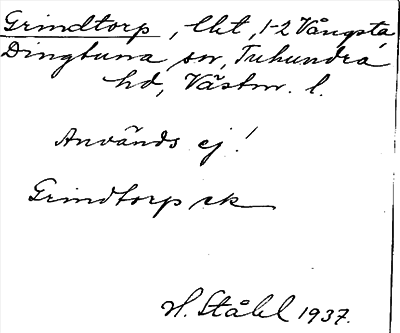 Grindtorp, lht, 1-2 Vångsta
Dingtuna sn, Tuhundra
hd, Västm. l.
Används ej!
Grindtorp ek
H. Ståhl 1937.